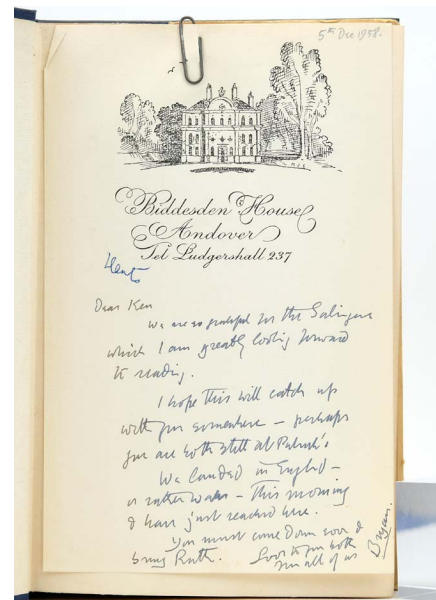 5th Dec 1958.
Biddesden House
Andover
Tel Ludgershall 237
Hants
Dear Ken
We are so grateful for the Salinger
which I am greatly looking forward
to reading.
I hope this will catch up
with you somewhere – perhaps
you are both still at Patrick's
We landed in England –
or rather Wales – this morning
& have just reached here.
You must come down soon &
bring Ruth.
Love to you both
from all of us
Bryan.